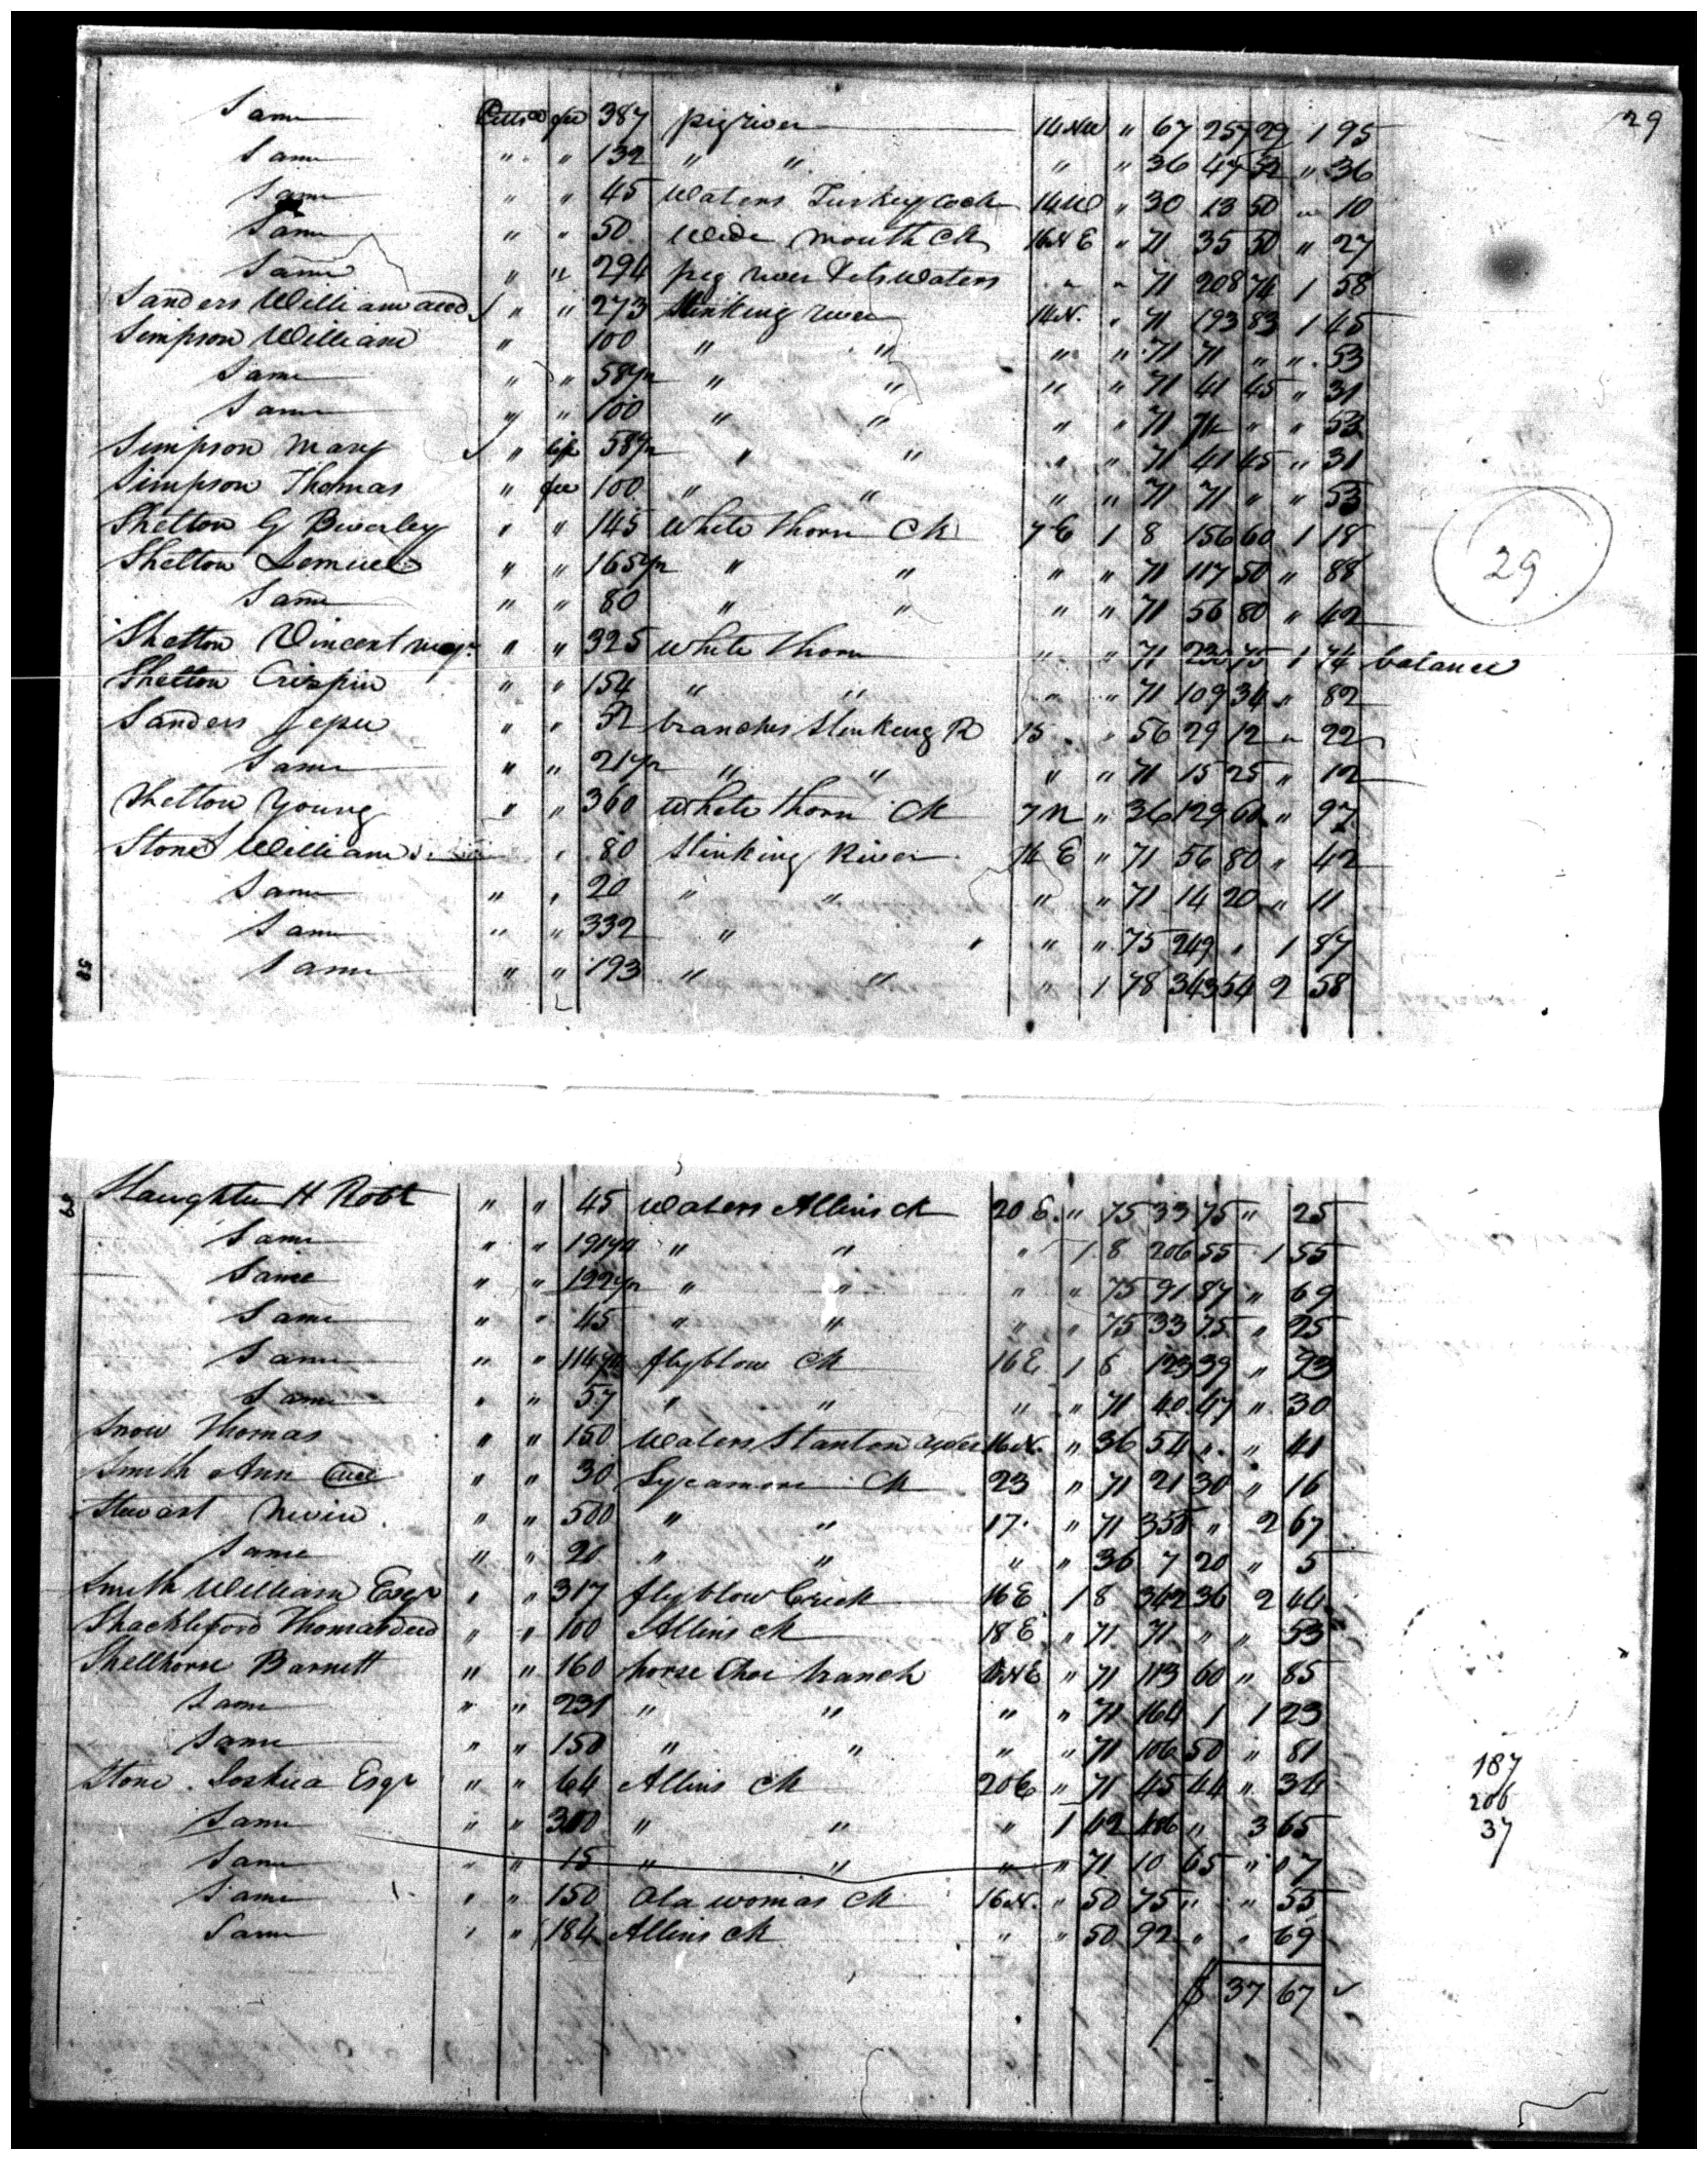 29
Same Pittsa fee 387 pigriver 14 NW " 67 257 29 1 95
Same " " 132 " " " " 36 47 52 " 36
Same " " 45 Waters Turkeycock 14W " 30 13 50 " 10
Same " " 50 Wide mouth Ck 16NE " 71 35 50 " 27
Same " " 294 pig river & its Waters " " 71 208 74 1 58
Sanders William decd " " 273 Stinking river 14N. " 71 193 83 1 45
Simpson William " 100 " " " " 71 71 " " 53
Same " " 58½ " " " " 71 41 45 " 31
Same " " 100 " " " " 71 71 " " 53
Simpson Mary " life 58½ " " " " 71 41 45 " 31
Simpson Thomas " fee 100 " " " " 71 71 " " 53
Shelton G Beverley " " 145 White thorn Ck 7 E 1 8 156 60 1 18
Shelton Lemuel " " 165½ " " " " 71 117 50 " 88
Same " " 80 " " " " 71 56 80 " 42
Shelton Vincent majr. " " 325 White thorn " " 71 230 75 1 74 balance
29
Shelton Crispin " " 154 " " " " 71 109 34 " 82
Sanders Jepee " " 52 branches Stinking R 15 " 56 29 12 " 22
Same " " 21½ " " " " 71 15 25 " 12
Shelton Young " " 360 White thorn Ck 7 N " 36 129 60 " 97
Stone William " 80 Stinking River 14 E " 71 56 80 " 42
Same " " 20 " " " " 71 14 20 " 11
Same " " 332 " " " " 75 249 " 1 87
Same " " 193 " " " 1 78 343 54 2 58
Slaughter H Robt " " 45 Waters Allins ck 20 E. " 75 33 75 " 25
Same " " 191¼ " " " 1 8 206 55 1 55
Same " " 122½ " " " " 75 91 87 " 69
Same " " 45 " " " " 75 33 75 " 25
Same " " 114¼ flyblow Ck 16 E 1 8 123 39 " 93
Same " " 57 " " " " 71 40 47 " 30
Snow Thomas " " 150 Waters Stanton 16N. " 36 54 " " 41
Smith Ann " " 30 Sycamore Ck 23 " 71 21 30 " 16
Stewart Nevin " " 500 " " 17. " 71 355 " 2 67
Same " " 20 " " " " 36 7 20 " 5
Smith William Esqr " " 317 flyblow Creek 16 E 1 8 342 36 2 44
Shackleford Thomas decd " " 100 Allins Ck 18 E " 71 71 " " 53
Shellhorse Barnett " " 160 horse Shoe branch NE " 71 113 60 " 85
Same " " 231 " " " " 71 164 1 1 23
Same " " 150 " " " " 71 106 50 " 81
Stone Joshua Esqr " " 64 Allins Ck 20 E " 71 45 44 " 34
Same " " 300 " " " 1 62 486 " 3 65
Same " " 15 " " " " 71 10 65 " 07
Same " " 150 Old womas Ck 16N. " 50 75 " " 55
Same " " 184 Allins Ck " " 50 92 " " 69
$ 37 67
187
206
37